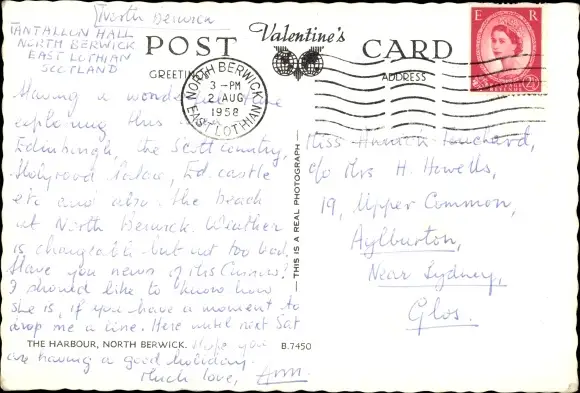 North Berwick
TANTALLON HALL
NORTH BERWICK
EAST LOTHIAN
SCOTLAND
POST
Valentine's
CARD
GREETING
ADDRESS
E R
2½
REVENUE
NORTH BERWICK
3 - PM
2 AUG
1958
EAST LOTHIAN
Having a wonderful time
exploring this
Edinburgh, the Scott Country,
Holyrood Palace, Ed. castle
etc and also the beach
at North Berwick. Weather
is changeable but not too bad.
Have you news of Mrs
I should like to know how
she is, if you have a moment to
drop me a line. Here until next Sat
Hope you
are having a good holiday.
Much love, Ann.
THIS IS A REAL PHOTOGRAPH
Miss
c/o Mrs H. Howells,
19, Upper Common,
Aylburton,
Near Lydney,
Glos.
THE HARBOUR, NORTH BERWICK.
B.7450